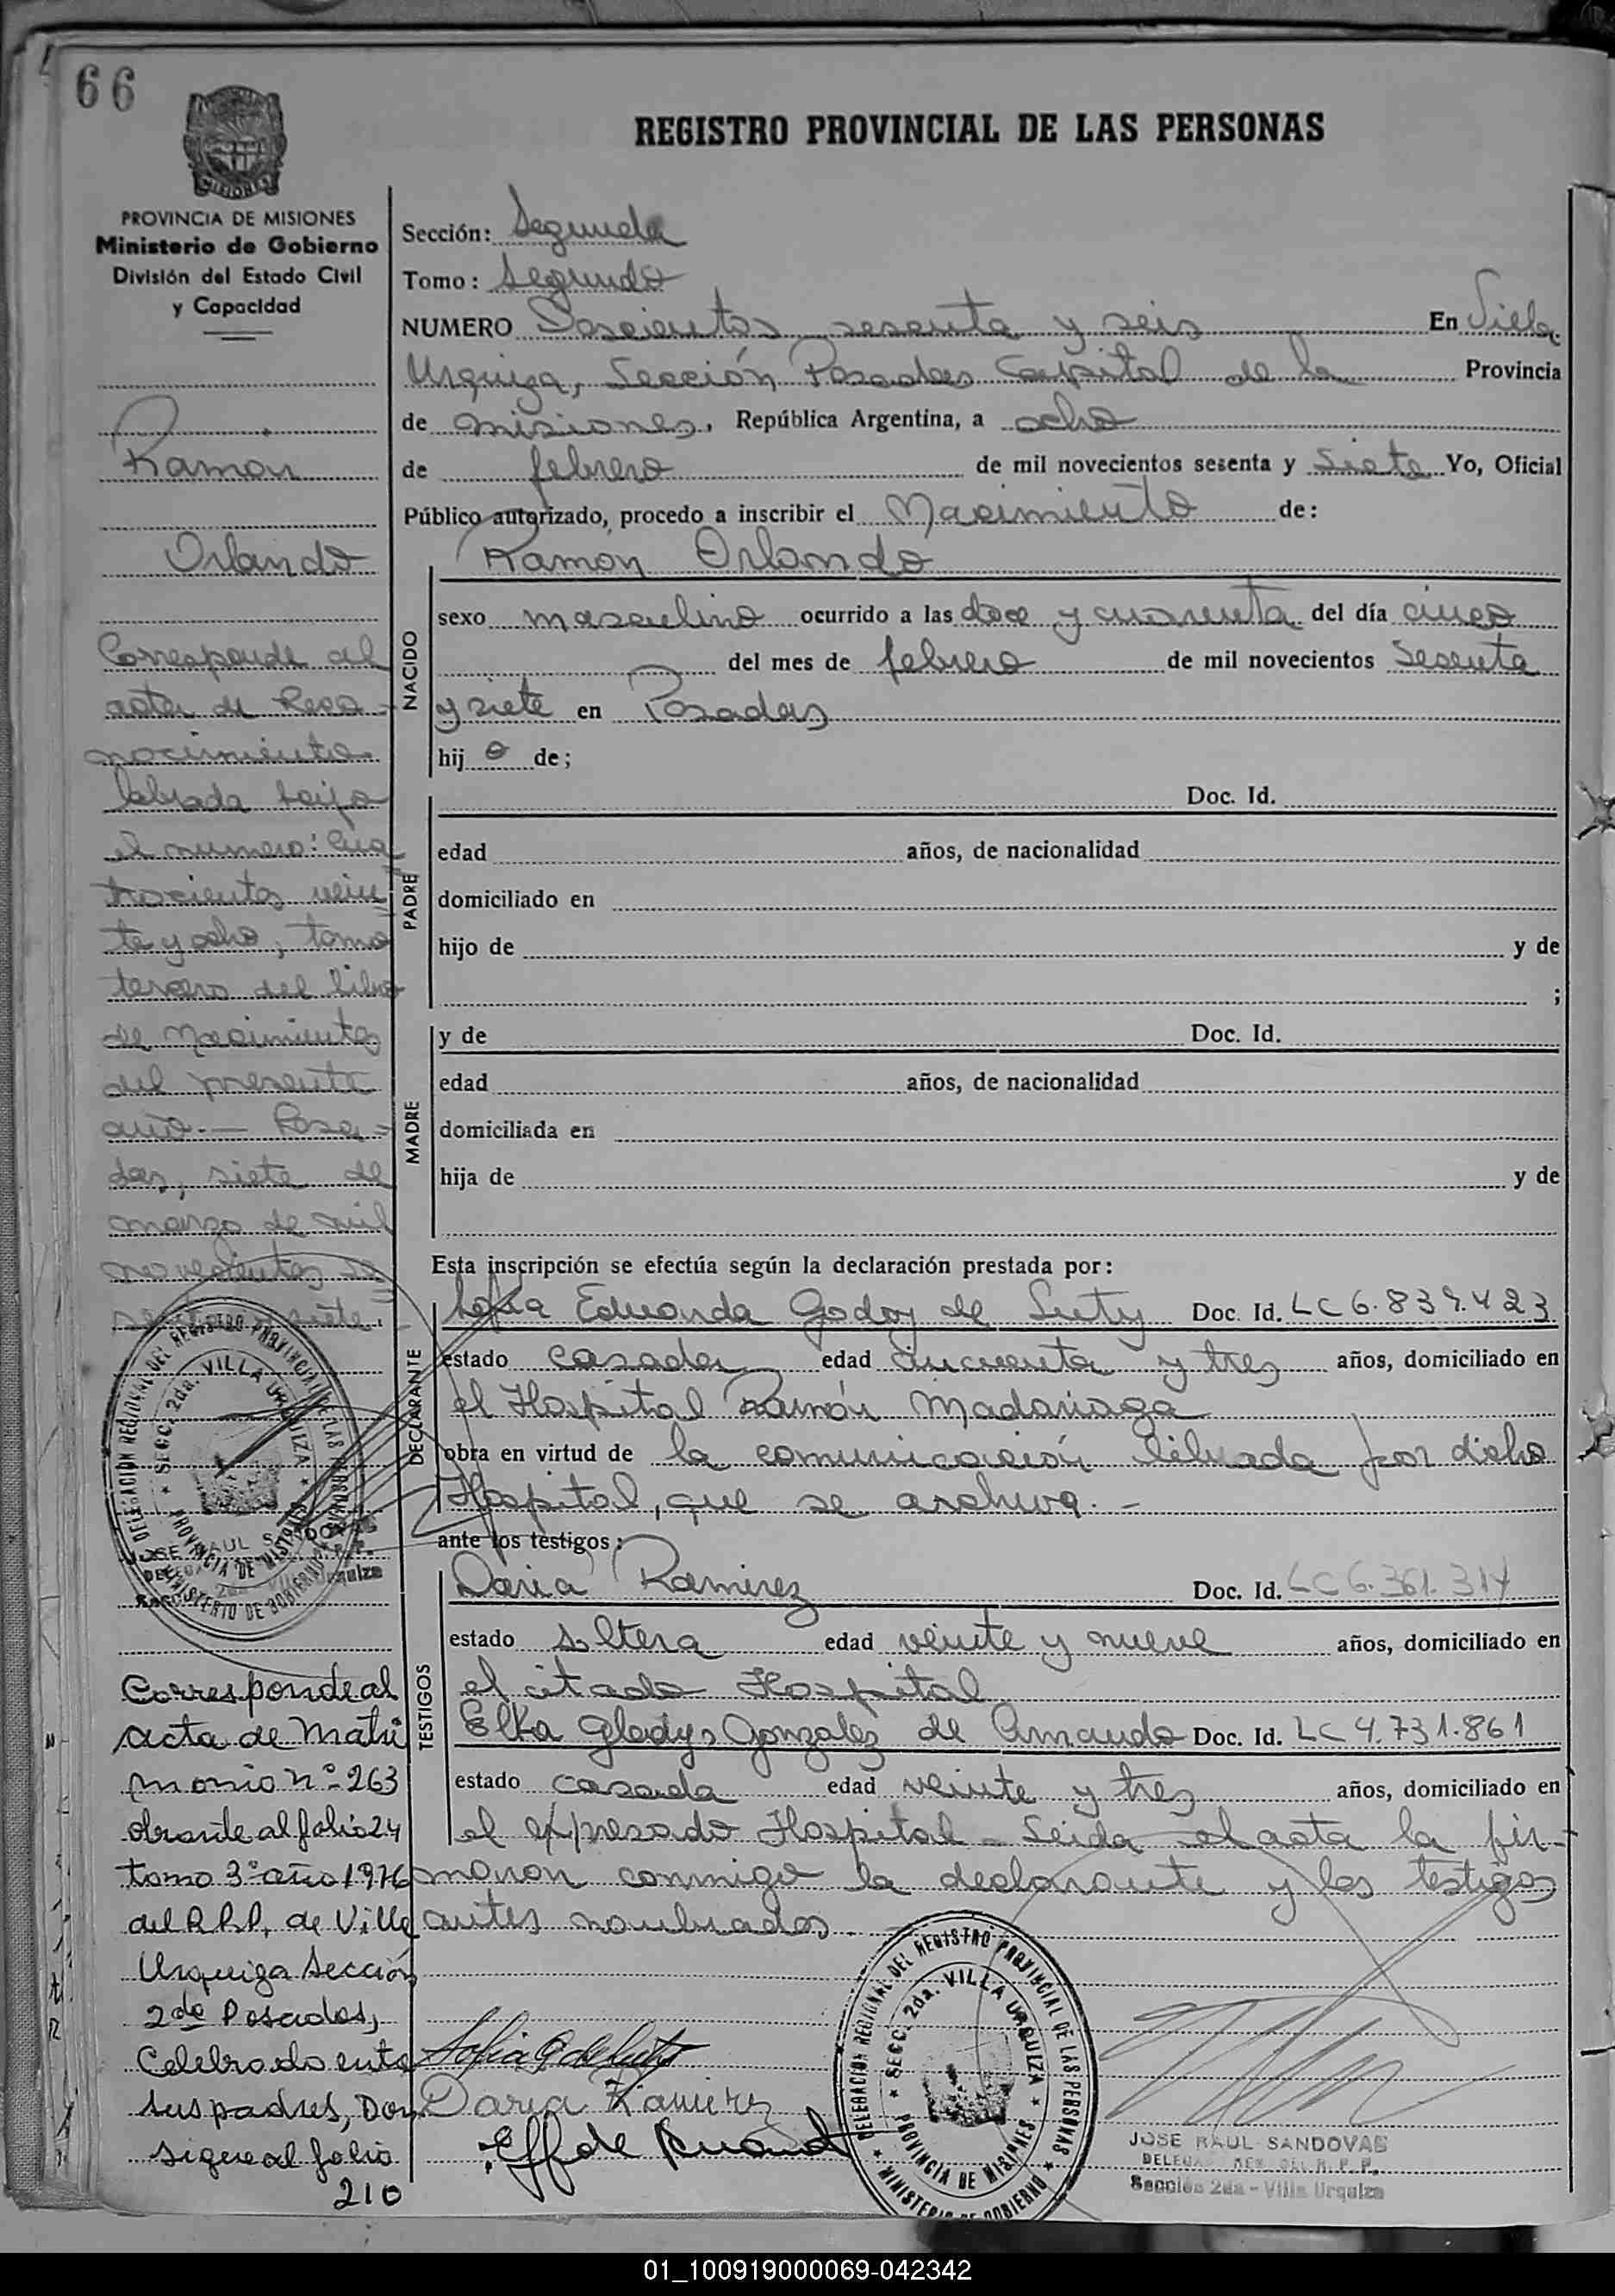 66
REGISTRO PROVINCIAL DE LAS PERSONAS
MISIONES
PROVINCIA DE MISIONES
Ministerio de Gobierno
División del Estado Civil
y Capacidad
Ramon
Orlando
Corresponde al
acta de Reco-
nocimiento
labrada bajo
el numero: Cua
trocientos vein
te y ocho, tomo
tercero del libro
de Nacimientos
del presente
año.— Posa=
das, siete de
marzo de mil
novecientos se
senta y siete.
DELEGACION REGIONAL DEL REGISTRO PROVINCIAL DE LAS PERSONAS
SECC. 2da. VILLA URQUIZA
PROVINCIA DE MISIONES
MINISTERIO DE GOBIERNO
JOSE RAUL SANDOVAL
Corresponde al
acta de Matri
monio nº 263
obrante al folio 24
tomo 3º año 1976
del R.P.P. de Villa
Urquiza Sección
2da Posadas,
Celebrado entre
sus padres, Don
sigue al folio
210
Sección: Segunda
Tomo: Segundo
NUMERO Doscientos sesenta y seis En Villa
Urquiza, Sección Posadas Capital de la Provincia
de misiones, República Argentina, a ocho
de febrero de mil novecientos sesenta y Siete Yo, Oficial
Público autorizado, procedo a inscribir el Nacimiento de:
NACIDO
Ramón Orlando
sexo masculino ocurrido a las doce y cuarenta del día cinco
del mes de febrero de mil novecientos Sesenta
y siete en Posadas
hij o de;
PADRE
Doc. Id.
edad años, de nacionalidad
domiciliado en
hijo de y de
;
MADRE
y de Doc. Id.
edad años, de nacionalidad
domiciliada en
hija de y de
Esta inscripción se efectúa según la declaración prestada por:
DECLARANTE
Sofia Eduarda Godoy de Doc. Id. LC 6.839.423
estado casada edad cincuenta y tres años, domiciliado en
el Hospital Ramón Madariaga
obra en virtud de la comunicación librada por dicho
Hospital, que se archiva.-
ante los testigos:
TESTIGOS
Daria Ramirez Doc. Id. LC 6.361.314
estado soltera edad veinte y nueve años, domiciliado en
el citado Hospital
Elba Gladys Gonzalez de Doc. Id. LC 4.731.861
estado casada edad veinte y tres años, domiciliado en
el expresado Hospital - Leida el acta la fir-
maron conmigo la declarante y los testigos
antes nombrados.
Sofia G de
Daria Ramirez
DELEGACION REGIONAL DEL REGISTRO PROVINCIAL DE LAS PERSONAS
SECC. 2da. VILLA URQUIZA
PROVINCIA DE MISIONES
MINISTERIO DE GOBIERNO
JOSE RAUL SANDOVAL
DELEGADO REG. DEL R. P. P.
Sección 2da - Villa Urquiza
01_100919000069-042342